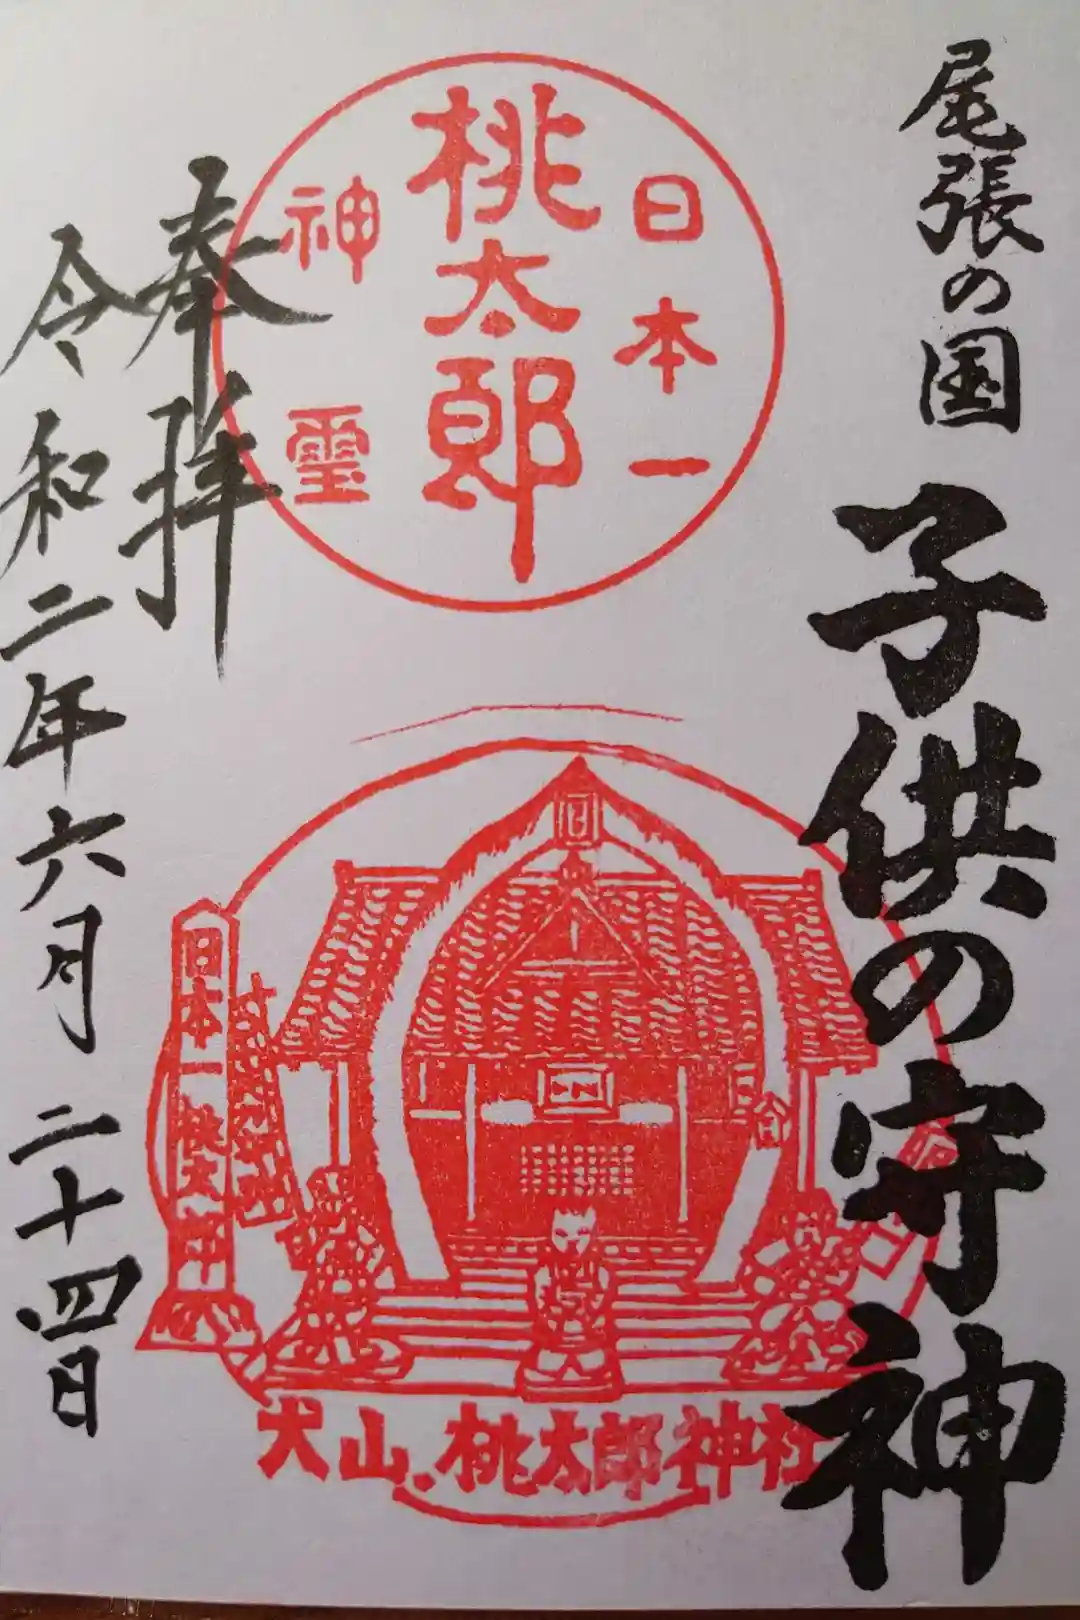 尾張の国 子供の守神
日本一
桃太郎
神璽
奉拝
令和二年六月二十四日
日本一桃太郎
犬山.桃太郎神社